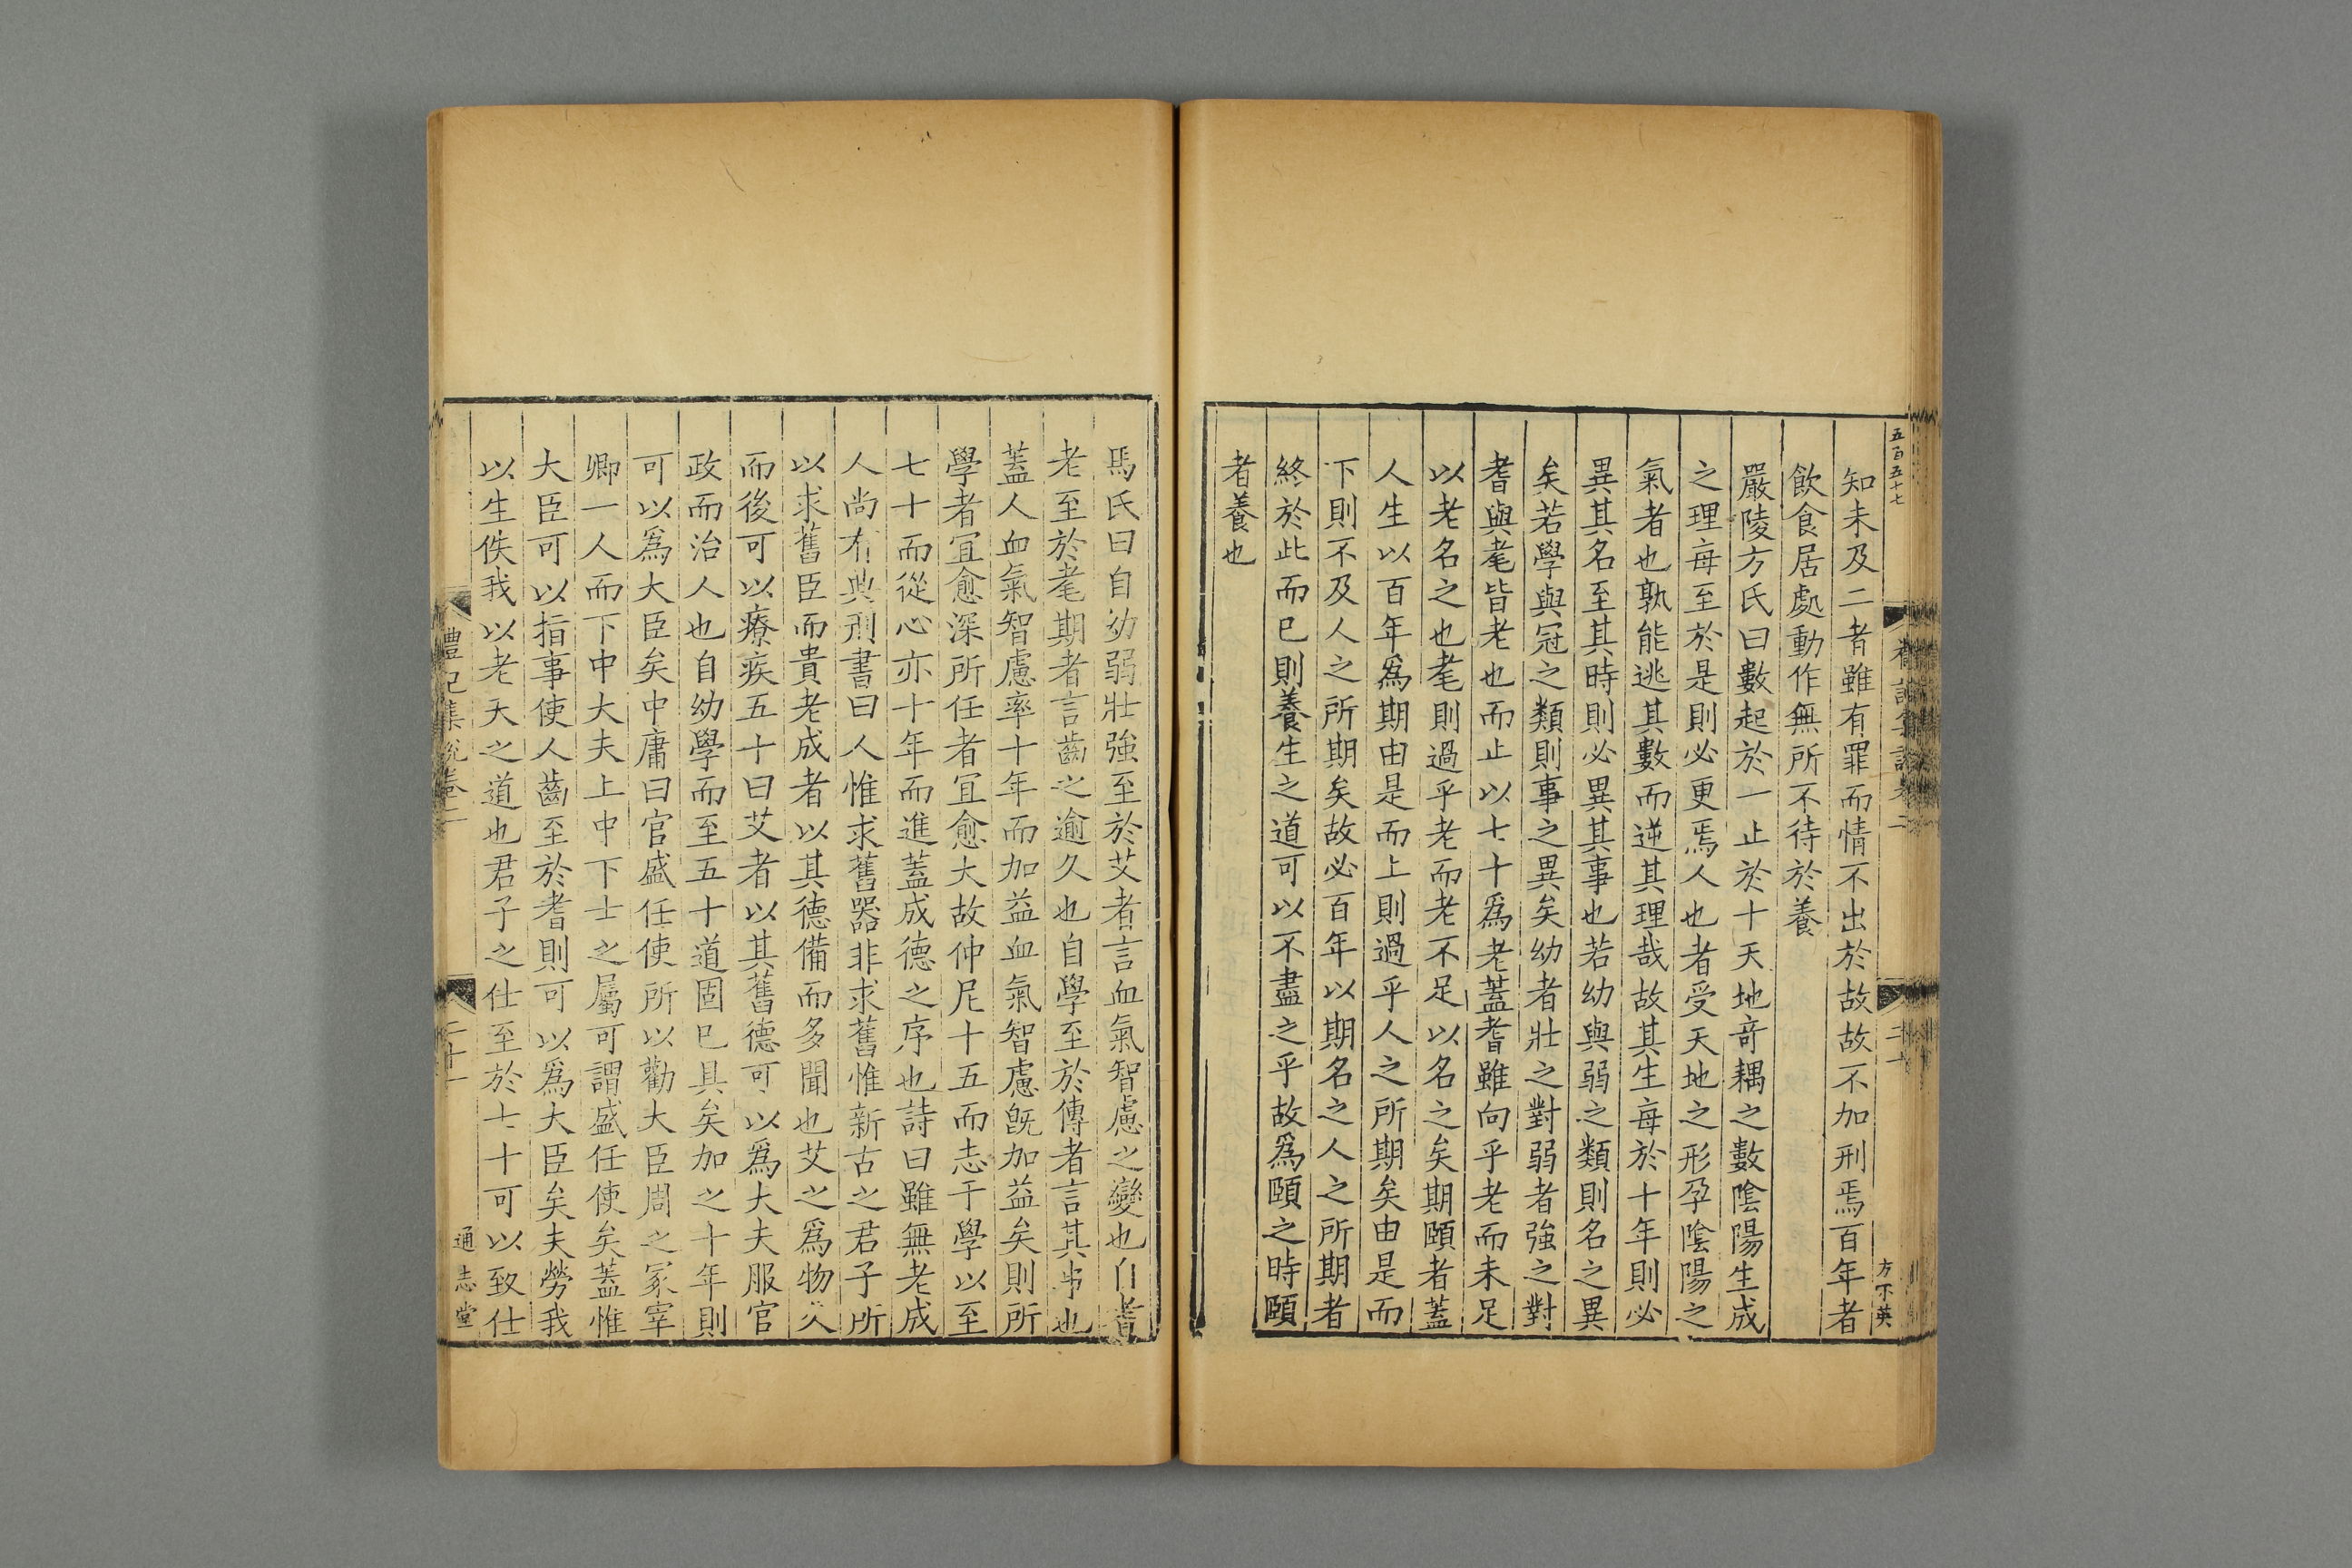 五百五十七
二十
方下英
知未及二者雖有罪而情不出於故故不加刑焉百年者
飲食居處動作無所不待於養
嚴陵方氏曰數起於一止於十天地奇耦之數陰陽生成
之理每至於是則必更焉人也者受天地之形孕陰陽之
氣者也孰能逃其數而逆其理哉故其生每於十年則必
異其名至其時則必異其事也若幼與弱之類則名之異
矣若學與冠之類則事之異矣幼者壯之對弱者強之對
耆與耄皆老也而止以七十爲老蓋耆雖向乎老而未足
以老名之也耄則過乎老而老不足以名之矣期頤者蓋
人生以百年爲期由是而上則過乎人之所期矣由是而
下則不及人之所期矣故必百年以期名之人之所期者
終於此而已則養生之道可以不盡之乎故爲頤之時頤
者養也
馬氏曰自幼弱壯強至於艾者言血氣智慮之變也自耆
老至於耄期者言齒之逾久也自學至於傳者言其事也
蓋人血氣智慮率十年而加益血氣智慮旣加益矣則所
學者宜愈深所任者宜愈大故仲尼十五而志于學以至
七十而從心亦十年而進蓋成德之序也詩曰雖無老成
人尚有典刑書曰人惟求舊器非求舊惟新古之君子所
以求舊臣而貴老成者以其德備而多聞也艾之爲物久
而後可以療疾五十曰艾者以其舊德可以爲大夫服官
政而治人也自幼學而至五十道固已具矣加之十年則
可以爲大臣矣中庸曰官盛任使所以勸大臣周之冢宰
卿一人而下中大夫上中下士之屬可謂盛任使矣蓋惟
大臣可以指事使人齒至於耆則可以爲大臣矣夫勞我
以生佚我以老天之道也君子之仕至於七十可以致仕
禮記集說卷二
二十一
通志堂